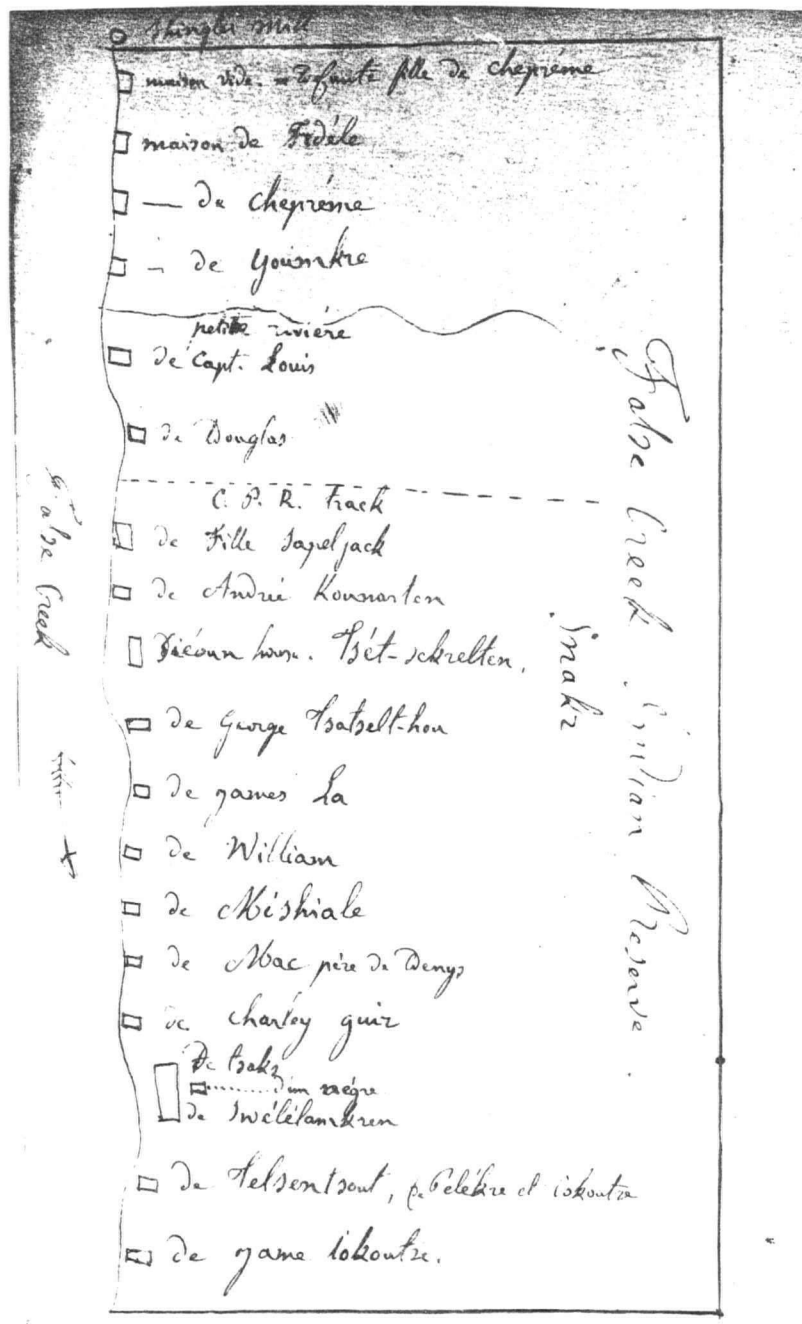 Shingles mill
maison vide. = Défunte fille de cheprême
maison de Fidèle
— de cheprême
- de younukre
petite rivière
de Capt. Louis
de Douglas
C. P. R. Track
de Fille Sapeljack
de André
house. Tsét-sekrelten,
de George Tsatselt-hou
de james La
de William
de Mishiale
de Mac père de Denys
de charley guiz
De tsakz
d'un nègre
de Swélélamkren
de Telsentsout, de Pelékre et iokoutre
de jame iokoutre.
False Creek
False Creek Indian Reserve
Snakz